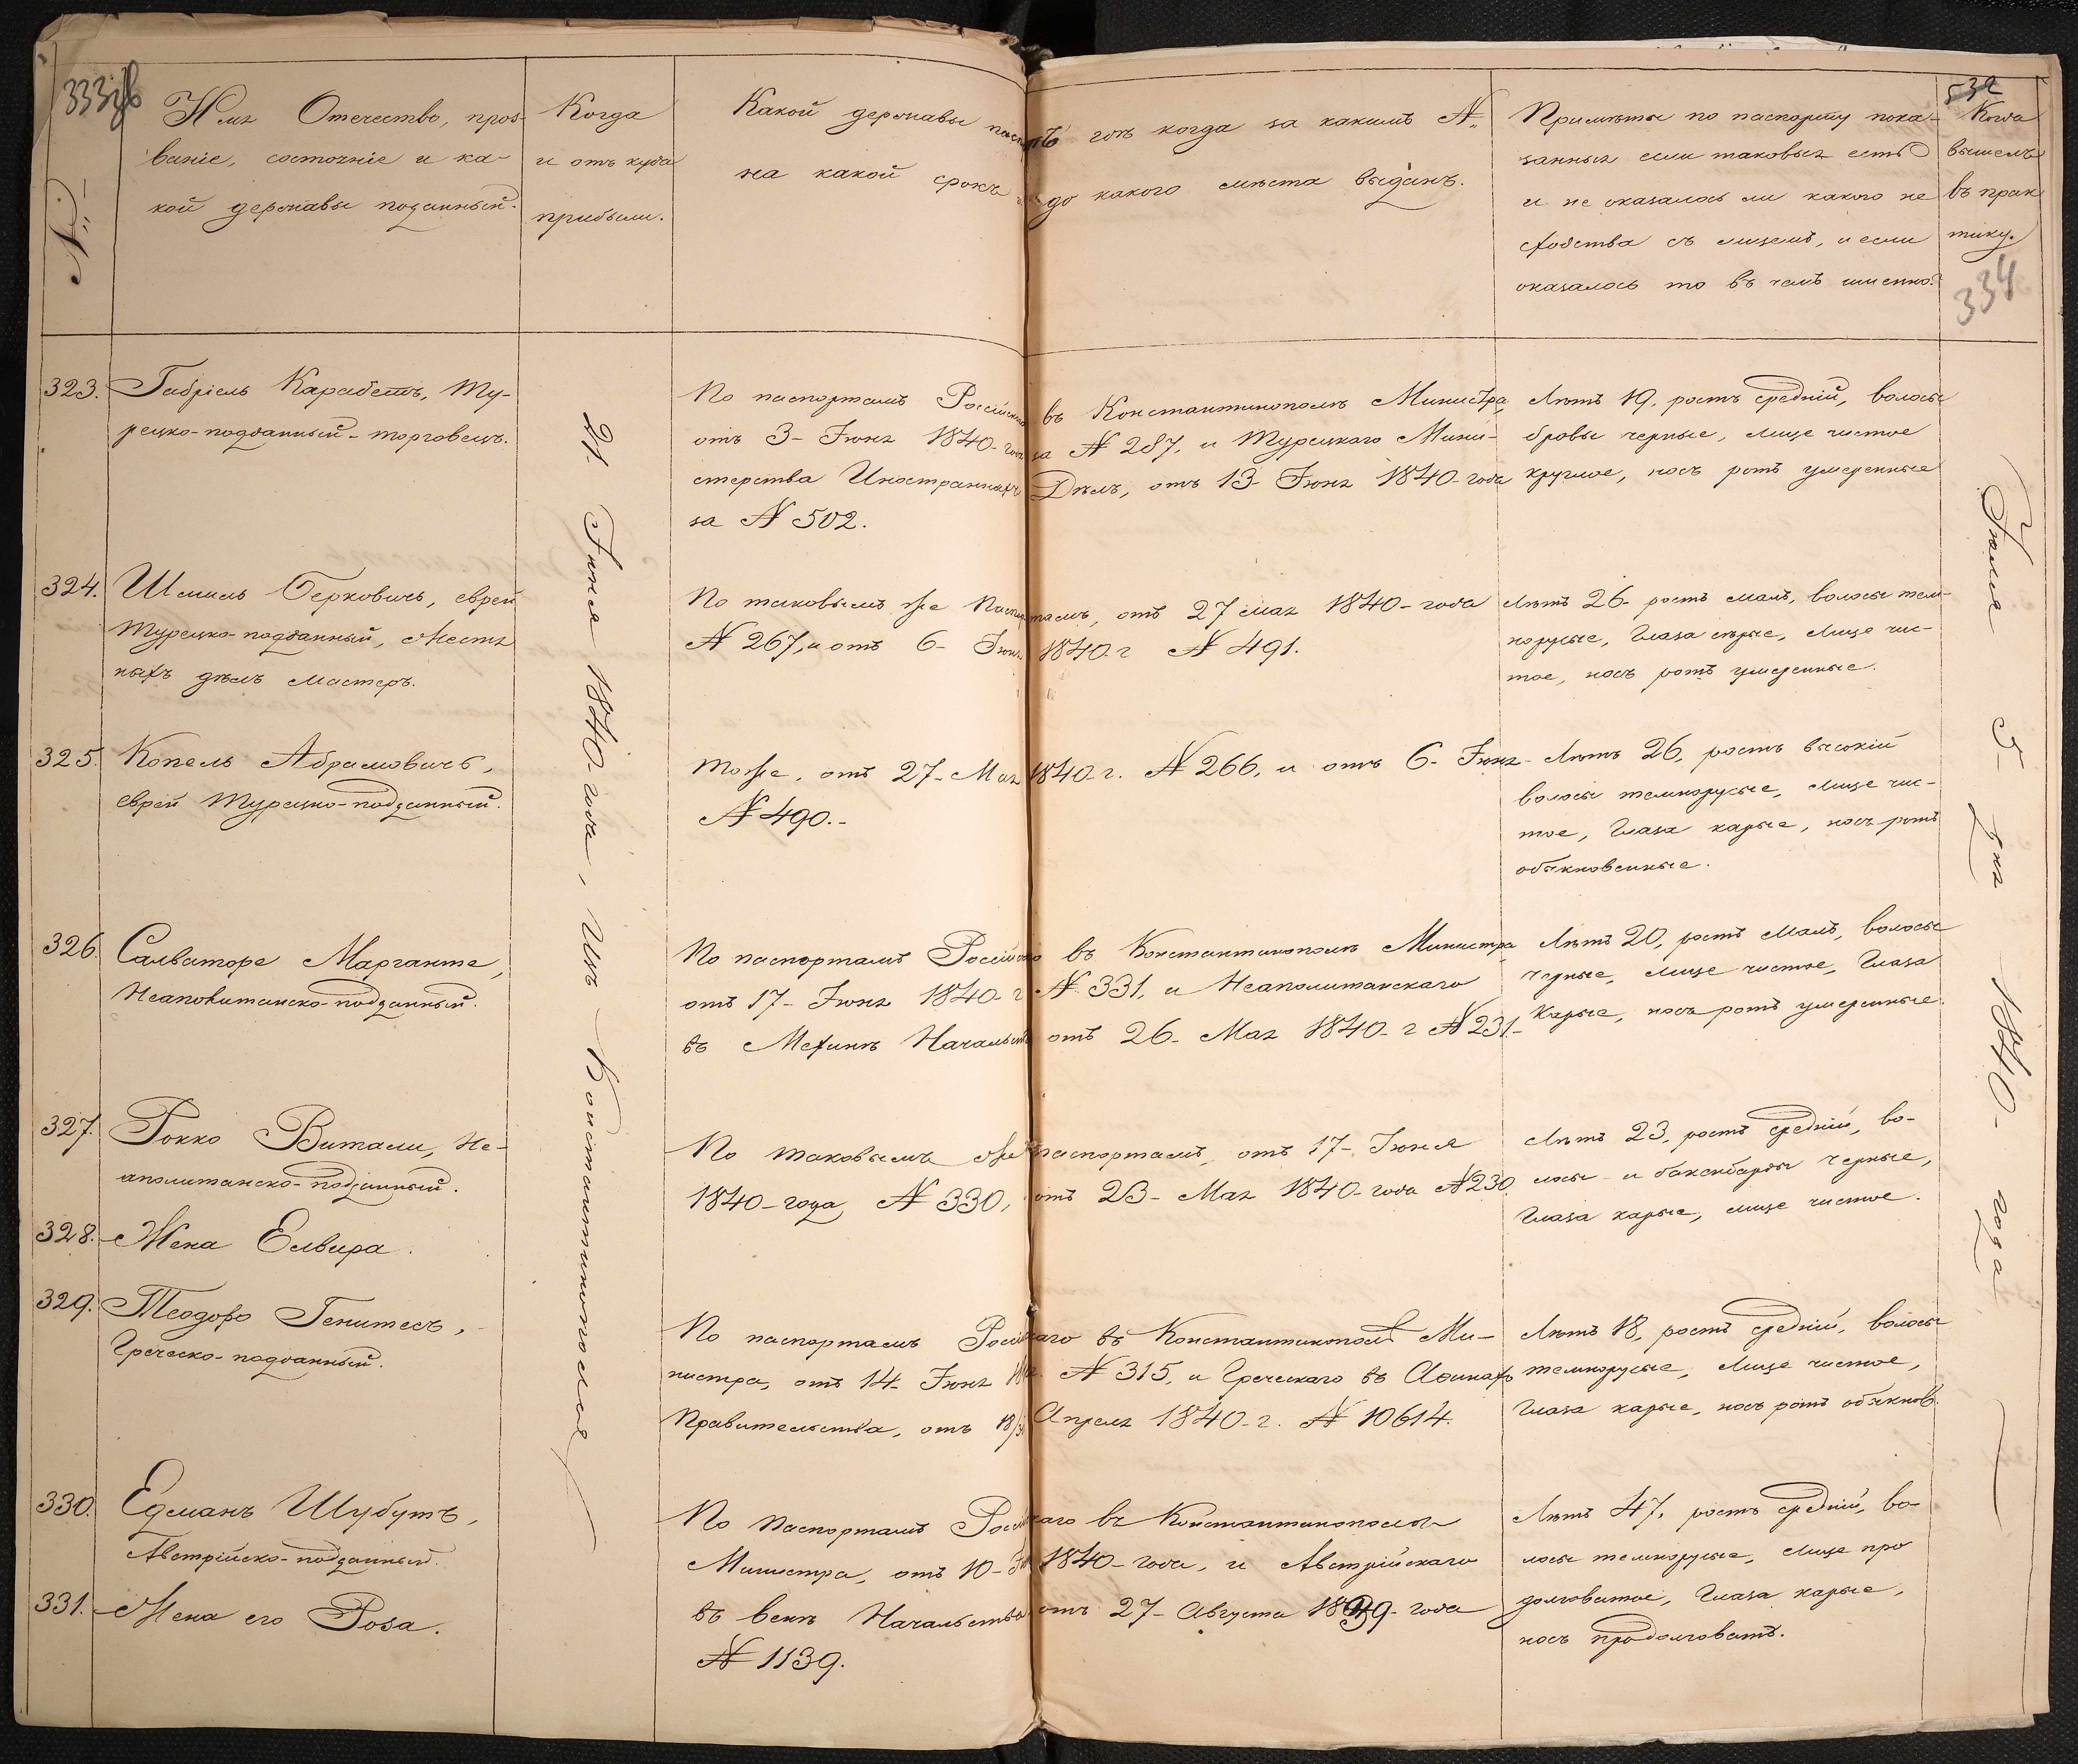 333об
532
334
№
Имя Отечество, проз-
ваніе, состояніе и ка-
кой державы подданный.
Когда
и отъ куда
прибыли.
Какой державы пасп
гдѣ когда за какимъ №
на какой срокъ и до какого мѣста выданъ.
Примѣты по паспорту пока-
занныя если таковыя есть
и не оказалось ли какого не
сходства съ лицемъ, и если
оказалось то въ чемъ именно?
Когда
вышелъ
въ прак
тику.
323. Габріель Карабетъ, Ту-
рецко-подданный-торговецъ.
21 Іюня 1840 года, Изъ Константинополя
По паспортамъ Россійско въ Константинополѣ Министра
отъ 3- Іюня 1840- года за № 287, и Турецкаго Мини-
стерства Иностранныхъ Дѣлъ, отъ 13- Іюня 1840- года
за № 502.
Лѣтъ 19. ростъ средній, волосы
бровы черные, лице чистое
круглое, носъ ротъ умеренные
Іюля 5- дня 1840- года
324. Шмиль Берковичъ, еврей
Турецко-подданный, Жестя
ныхъ дѣлъ мастеръ.
По таковымъ же Паспортамъ, отъ 27 мая 1840- года
№ 267, и отъ 6- Іюня 1840- г № 491.
Лѣтъ 26- ростъ малъ, волосы тем-
норусые, Глаза сѣрые, Лице чис-
тое, носъ ротъ умеренные.
325. Копель Абрамовичъ,
еврей Турецко-подданный.
Тоже, отъ 27- Мая 1840- г. № 266, и отъ 6- Іюня
№ 490.-
Лѣтъ 26, ростъ высокій
волосы темнорусые, лице чис-
тое, Глаза карые, носъ ротъ
обыкновенные.
326. Салваторе Марганте,
Неаполитанско-подданный.
По паспортамъ Россійско въ Константинополѣ Министра
отъ 17- Іюня 1840- г № 331, и Неаполитанскаго
въ Месинѣ Начальств отъ 26- Мая 1840- г № 231-
Лѣтъ 20, ростъ малъ, волосы
черные, лице чистое, Глаза
карые, носъ ротъ умеренные.
327. Рокко Витали, Не-
аполитанско-подданный.
328. Жена Елвира.
По таковымъ же паспортамъ, отъ 17- Іюня
1840- года № 330, отъ 23- Мая 1840- года № 230
Лѣтъ 23, ростъ средній, во-
лосы и бакенбарды черные,
Глаза карые, лице чистое.
329. Теодоро Генитесъ,
Греческо-подданный.
По паспортамъ Россійскаго въ Константинополѣ Ми-
нистра, отъ 14- Іюня № 315, и Греческаго въ Аѳинахъ
Правительства, отъ Апреля 1840- г. № 10614.
Лѣтъ 18, ростъ средній, волосы
темнорусые, Лице чистое,
Глаза карые, носъ ротъ обыкнов.
330. Едманъ Шубутъ,
Австрійско-подданный.
331. Жена его Роза.
По Паспортамъ Россійскаго въ Константинополѣ
Министра, отъ 10- 1840- года, и Австрійскаго
въ Венѣ Начальства отъ 27- Августа 1839- года
№ 1139.
Лѣтъ 47. ростъ средній, во-
лосы темнорусые, Лице про
долговатое, Глаза карые,
носъ продолговатъ.